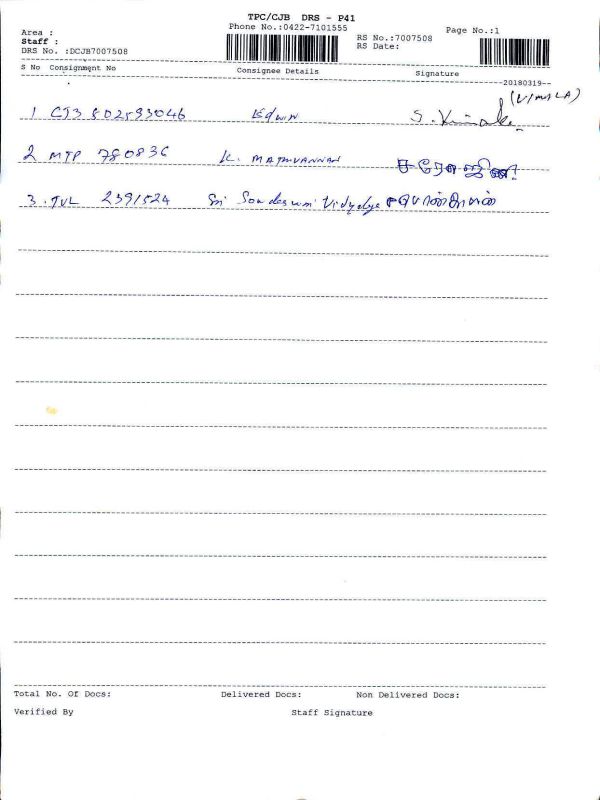 TPC/CJB DRS - P41
Phone No.:0422-7101555
Page No.:1
Area :
Staff :
RS No.:7007508
DRS No. :DCJB7007508
RS Date:
S No Consignment No Consignee Details Signature
20180319
(VIMALA)
1 CJ3 802593046 Edwin S. Vimala
2 MTP 780836 K. MATHIVANNAN சரோஜினி
3. TVL 2391524 Sri Vidyalya
Total No. Of Docs: Delivered Docs: Non Delivered Docs:
Verified By Staff Signature